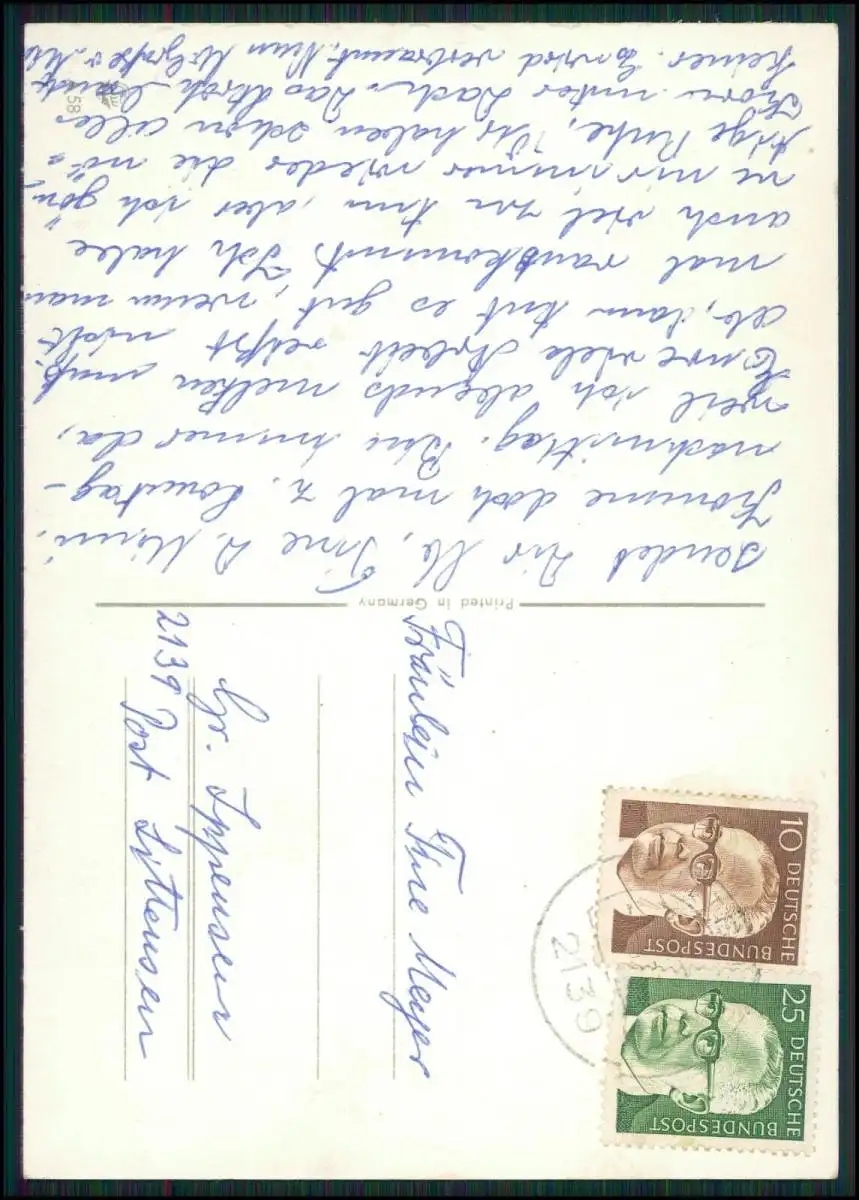 sendet Dir lb. Tine D. Minni.
Komme doch mal z. Sonntag-
nachmittag. Bin immer da,
weil ich abends melken muß.
viele Arbeit reißt nicht
ab, dann tut es gut, wenn man
mal rauskommt. Ich habe
auch viel zu tun, aber ich gön-
ne mir immer wieder die nö-
tige Ruhe, Wir haben schon alles
Korn unter Dach. Das Stroh kauft
keiner. Es wird verbrannt. Nun
58
Printed in Germany
Fräulein Tine Meyer
Gr. Ippensen
2139 Post Sittensen
10 DEUTSCHE
BUNDESPOST
25 DEUTSCHE
BUNDESPOST
2139